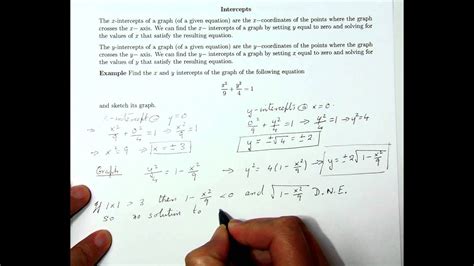 Intercepts
The x-intercepts of a graph (of a given equation) are the x−coordinates of the points where the graph
crosses the x− axis. We can find the x− intercepts of a graph by setting y equal to zero and solving for
the values of x that satisfy the resulting equation.
The y-intercepts of a graph (of a given equation) are the y−coordinates of the points where the graph
crosses the y− axis. We can find the y− intercepts of a graph by setting x equal to zero and solving for
the values of y that satisfy the resulting equation.
Example Find the x and y intercepts of the graph of the following equation
x²/9 + y²/4 = 1
and sketch its graph.
x-intercept @ y=0
x²/9 + 0²/4 = 1 → x²/9 = 1
→ x² = 9 → x = ±3
y-intercepts @ x=0
0²/9 + y²/4 = 1 → y² = 4
y = ±√4 = ±2
Graph y²/4 = 1 − x²/9 → y² = 4(1 − x²/9) → y = ±2√(1 − x²/9)
If |x| > 3 then 1 − x²/9 < 0 and √(1 − x²/9) D.N.E.
so no solution to